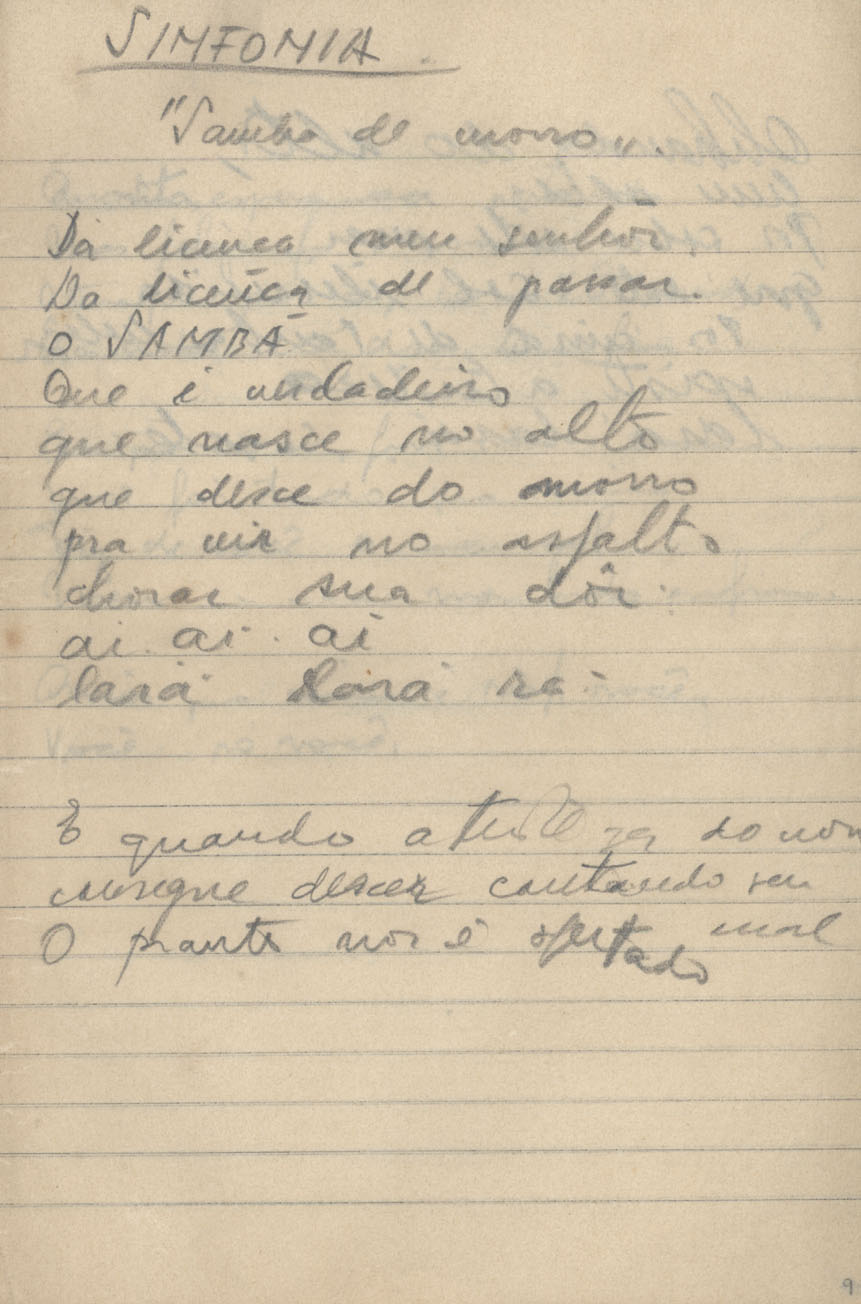 SIMFOMIA.
"Samba de morro".
Dá licença meu senhôr
Da licença de passar.
O SAMBA
Que é verdadeiro
que nasce no alto
que desce do morro
pra vir no asfalto
chorar sua dôr.
ai. ai. ai
lará lará ra.
E quando a tristeza do morr
consegue descer cantando seu mal
O pranto nos é ofertado
9